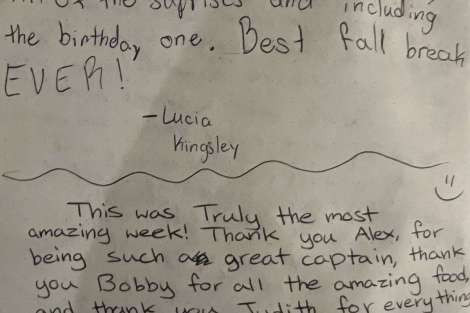 of the suprises and including
the birthday one. Best fall break
EVER!
-Lucia
Kingsley
This was Truly the most
amazing week! Thank you Alex, for
being such a great captain, thank
you Bobby for all the amazing food,
and thank you Judith for everything